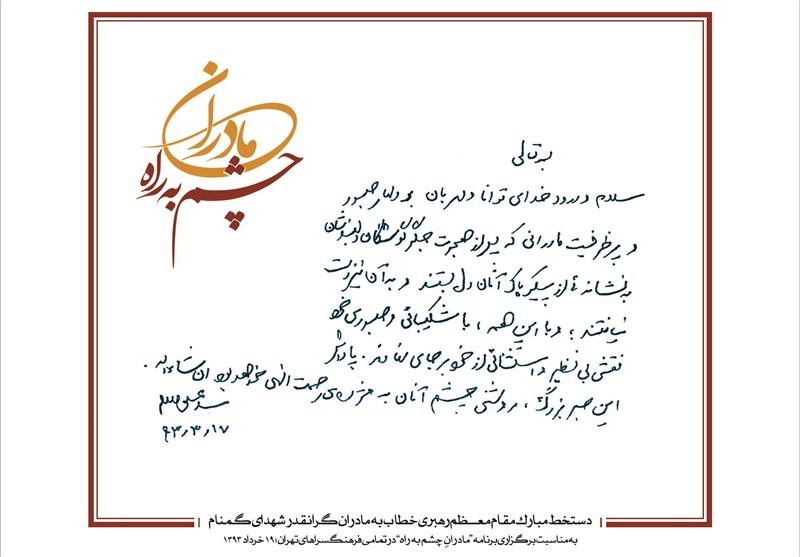 مادران
چشم به راه
بسمه تعالی
سلام و درود خدای توانا و مهربان بر دلهای صبور
و پرظرفیت مادرانی که پس از هجرت جگرگوشگان دلبندشان
به نشانه‌ئی از پیکر پاک آنان دل بستند و به آن نیز دست
نیافتند؛ و با این همه، با شکیبائی و صبوری خود
نقشی بی نظیر و استثنائی از خود بر جای نهادند. پاداش
این صبر بزرگ، روشنی چشم آنان به مژده‌ی رحمت الهی خواهد بود ان شاءالله.
۹۳٫۳٫۱۷
دستخط مبارک مقام معظم رهبری خطاب به مادران گرانقدر شهدای گمنام
به مناسبت برگزاری برنامه "مادران چشم به راه" در تمامی فرهنگسراهای تهران؛ ۱۹ خرداد ۱۳۹۳